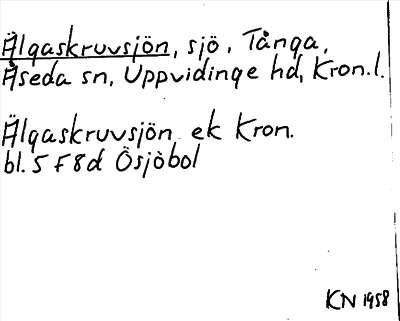 Älgaskruvsjön, sjö, Tånga,
Åseda sn, Uppvidinge hd, Kron.l.
Älgaskruvsjön ek Kron.
bl. 5 F 8 d Ösjöbol
KN 1958